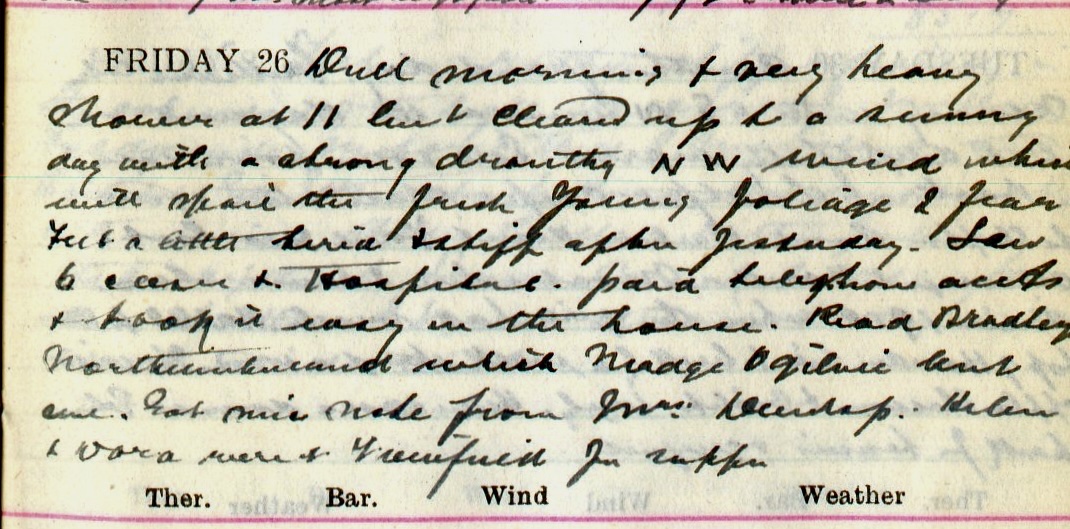 FRIDAY 26 Dull morning & very heavy
shower at 11 but cleared up to a sunny
day with a strong drouthy N W wind which
will spoil the fresh young foliage I fear
Felt a little tired & stiff after yesterday. Saw
6 cases & Hospital. paid telephone accts
& took it easy in the house. Read Bradley
Northumberland which Madge Ogilvie lent
me. Got nice note from Mrs. Dunlap. Helen
& went for supper
Ther. Bar. Wind Weather